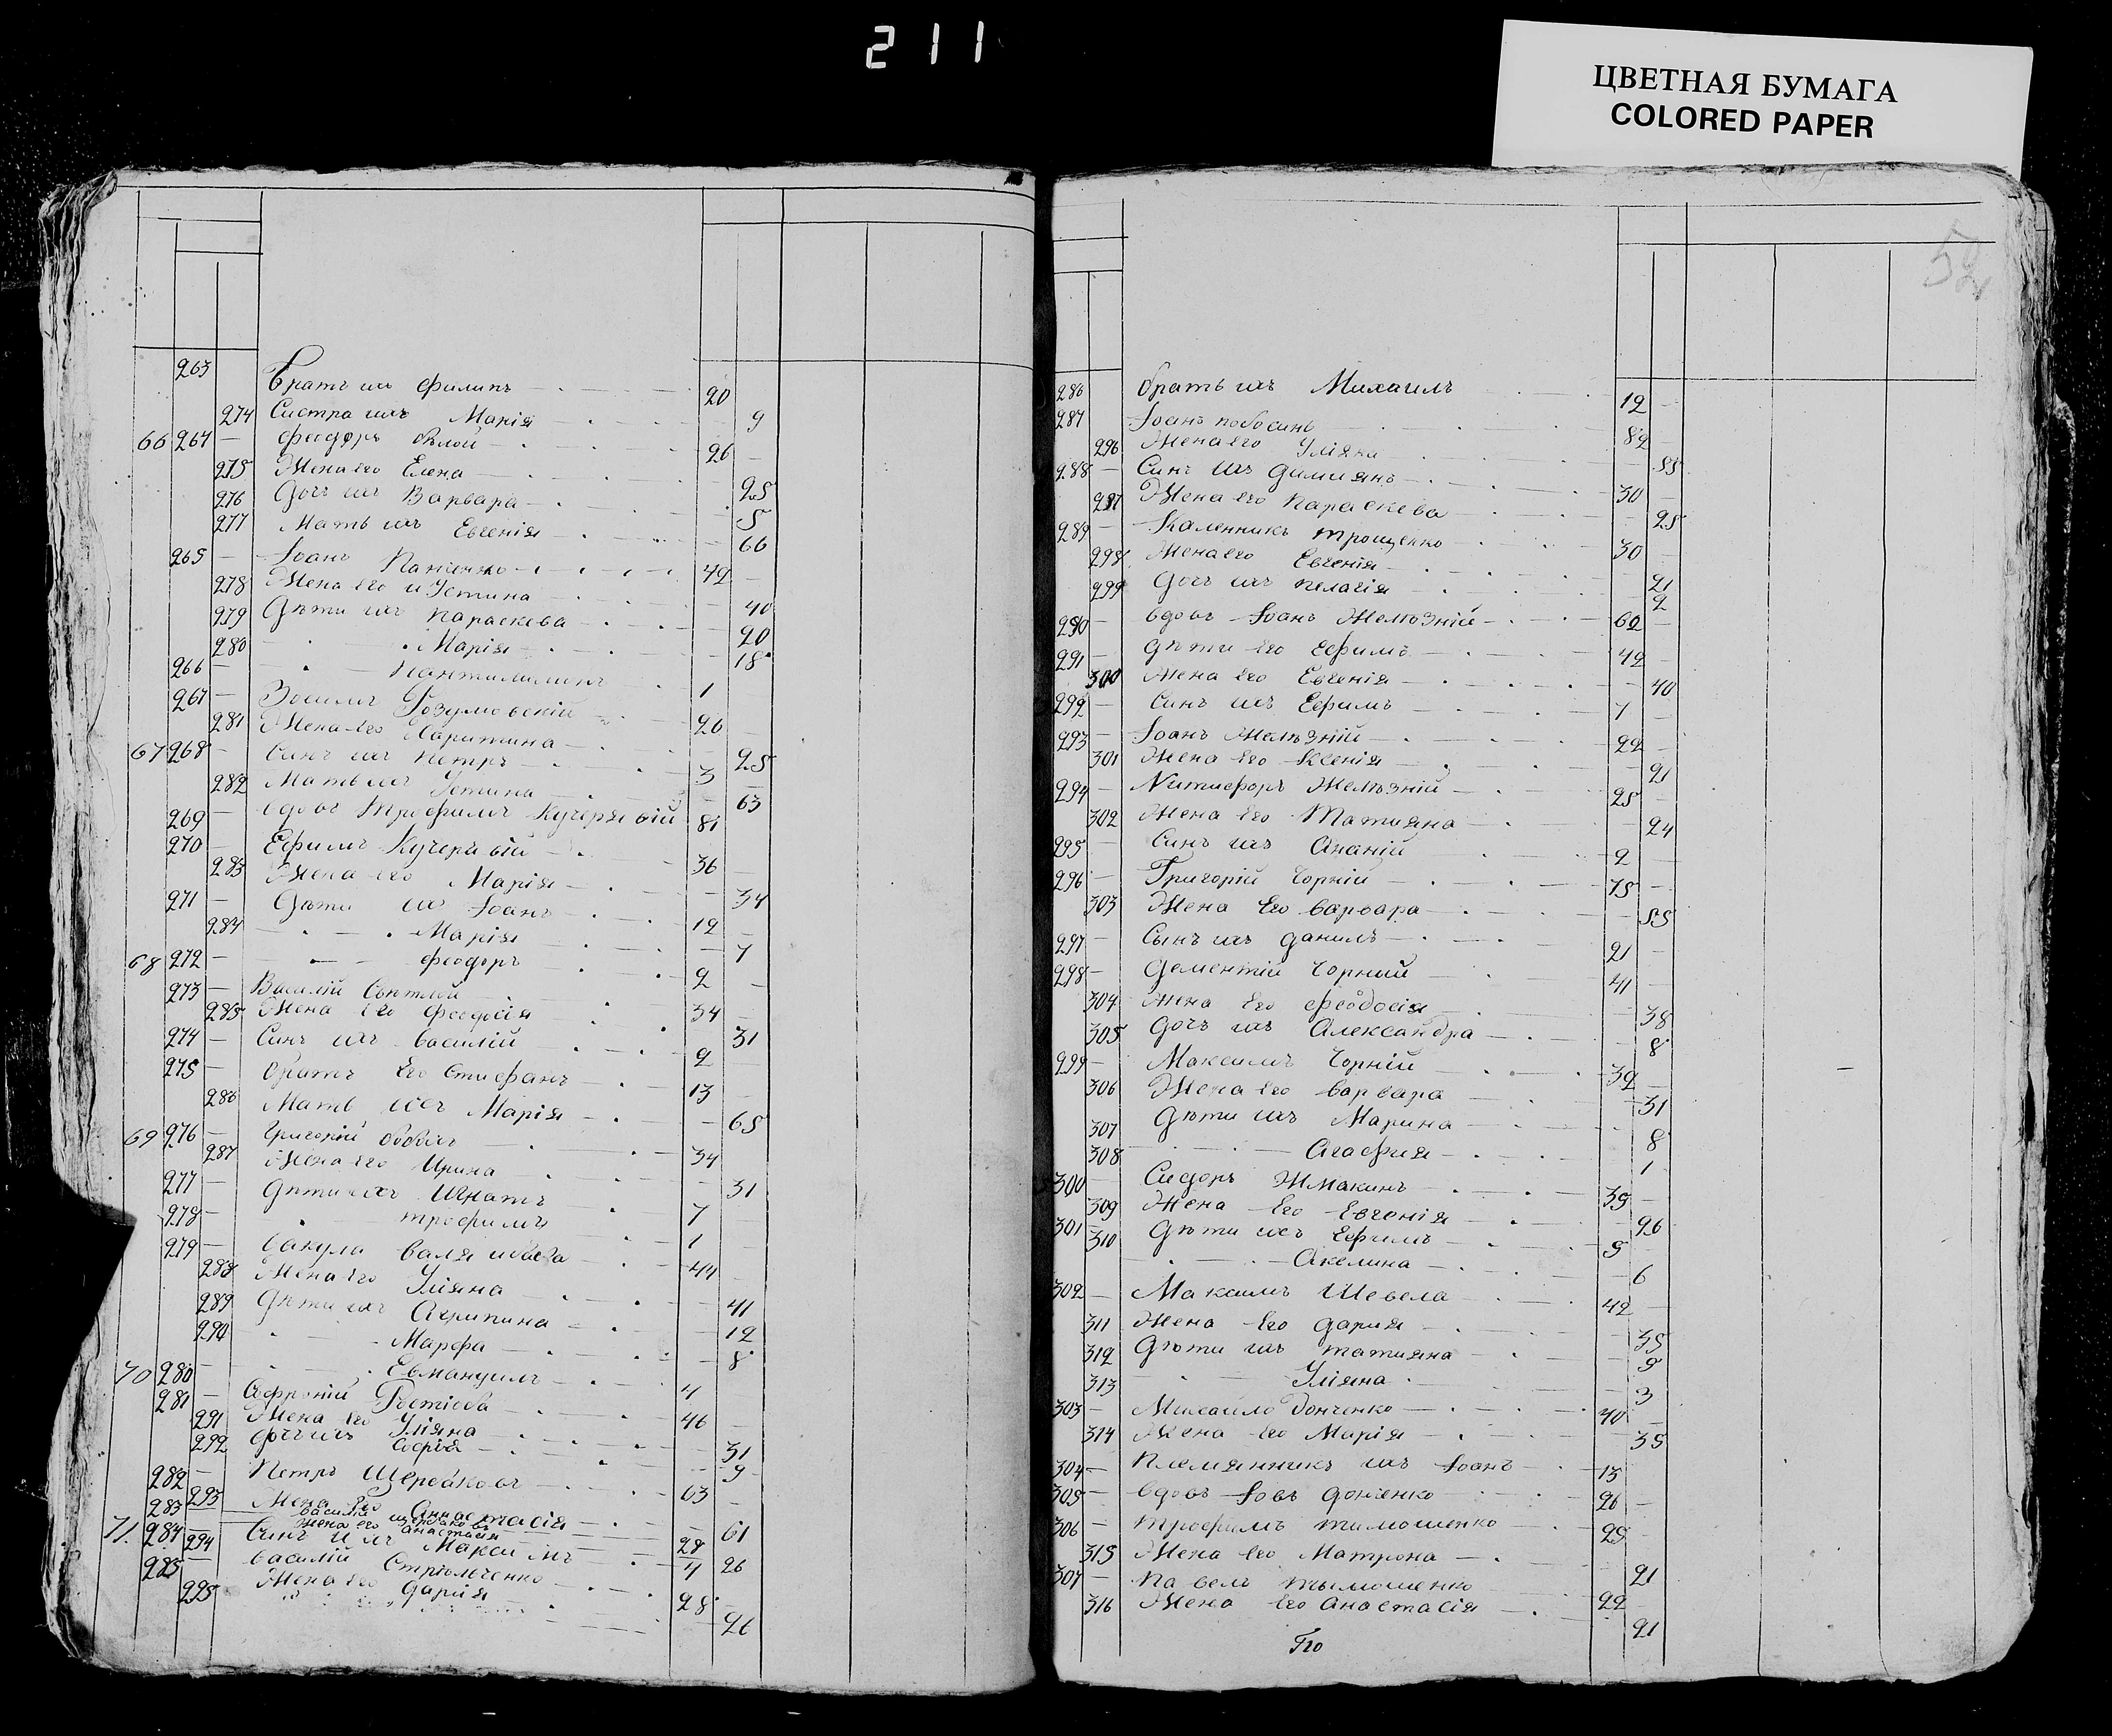 211
ЦВЕТНАЯ БУМАГА
COLORED PAPER
52
263 Братъ ихъ Филипъ 20
274 Систра ихъ Марія 9
66 264 Феодоръ Бѣлой 26
275 Жена его Елена 25
276 Дочь ихъ Варвара 5
277 Мать ихъ Евгенія 66
265 Іоанъ 42
278 Жена его Устина 40
279 Дѣти ихъ Параскева 20
280 Марія 18
266 Пантилимонъ 1
267 Зосимъ Розумовскій 26
281 Жена его Харитина 25
67 268 Синъ ихъ Петръ 3
282 Мать ихъ Устина 63
269 вдовъ Трофимъ Кучерявій 81
270 Ефимъ Кучерявій 36
283 Жена его Марія 34
271 Дѣти ихъ Іоанъ 12
284 Марія 7
68 272 Феодоръ 2
273 Василій 34
285 Жена его Феодосія 31
274 Синъ ихъ Василій 2
275 Братъ его Стефанъ 13
286 Мать ихъ Марія 65
69 276 Григорій 34
287 Жена его Ирина 31
277 Дѣти ихъ Игнатъ 7
278 Трофимъ 1
279 Вакула 44
288 Жена его Уліяна 41
289 Дѣти ихъ Агрипина 12
290 Марфа 8
70 280 Евмануилъ 4
281 Софроній 46
291 Жена его Уліяна 31
292 дочь ихъ Софія 9
282 Петръ Щербаковъ 63
293 Жена его Аннастасія 61
283 Василій Щербаковъ 28
Жена его Анастасія 26
71 284 294 Синъ ихъ Максимъ 4
285 Василій Стріольченко 28
295 Жена его Дарія 26
286 братъ ихъ Михаилъ 12
287 Іоанъ 82
296 Жена его Уліяна 55
288 Синъ ихъ Димиянъ 30
297 Жена его Параскева 25
289 Каленникъ Трощенко 30
298 Жена его Евгенія 21
299 Дочь ихъ Пелагія 2
290 вдовъ Іоанъ Желѣзній 62
291 Дѣти его Ефимъ 42
300 Жена его Евгенія 40
292 Синъ ихъ Ефимъ 7
293 Іоанъ Желѣзній 22
301 Жена его Ксенія 21
294 Никифоръ Желѣзній 25
302 Жена его Татияна 24
295 Синъ ихъ Ананій 2
296 Григорій Чорній 75
303 Жена Его Варвара 55
297 Сынъ ихъ Данилъ 21
298 Дементій Чорний 41
304 Жена Его Феодосія 38
305 Дочь ихъ Александра 8
299 Максимъ Чорній 32
306 Жена его Варвара 31
307 Дѣти ихъ Марина 8
308 Агафия 1
300 Сидоръ Жмакинъ 35
309 Жена Его Евгенія 26
301 Дѣти ихъ Ефимъ 9
310 Акелина 6
302 Максимъ Шевела 42
311 Жена Его Дария 35
312 Дѣти ихъ Татияна 9
313 Уліяна 3
303 Михайло Донченко 40
314 Жена его Марія 35
304 Племянникъ ихъ Іоанъ 13
305 вдовъ Іовъ Донченко 26
306 Трофимъ Тимошенко 25
315 Жена его Матрона 21
307 Павелъ Тымошенко 22
316 Жена его Анастасія 21